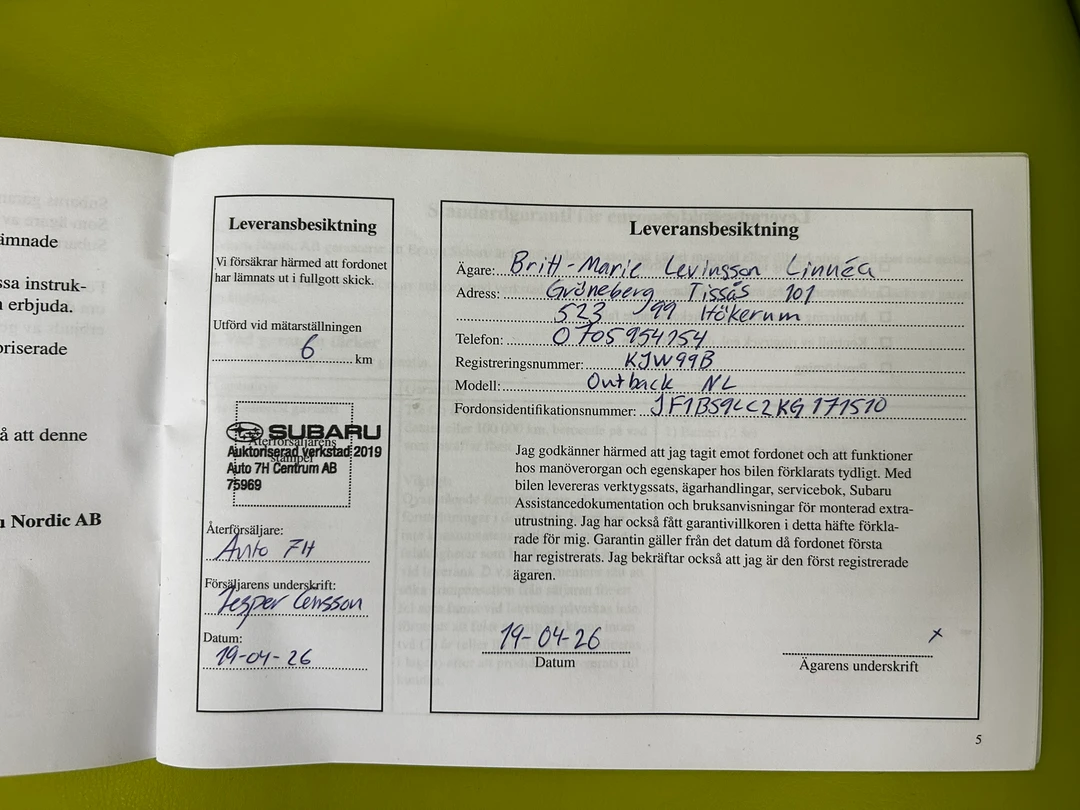 ämnade
ssa instruk-
n erbjuda.
oriserade
å att denne
u Nordic AB
Leveransbesiktning
Vi försäkrar härmed att fordonet
har lämnats ut i fullgott skick.
Utförd vid mätarställningen
6 km
SUBARU
Återförsäljarens
stämpel
Auktoriserad verkstad 2019
Auto 7H Centrum AB
75969
Återförsäljare:
Auto 7H
Försäljarens underskrift:
Jesper
Datum:
19-04-26
Leveransbesiktning
Ägare: Britt-Marie Levinsson Linnéa
Adress: Gröneberg Tissås 101
523 99 Hökerum
Telefon: 0705954254
Registreringsnummer: KJW99B
Modell: Outback NL
Fordonsidentifikationsnummer: JF1BS9LC2KG171510
Jag godkänner härmed att jag tagit emot fordonet och att funktioner
hos manöverorgan och egenskaper hos bilen förklarats tydligt. Med
bilen levereras verktygssats, ägarhandlingar, servicebok, Subaru
Assistancedokumentation och bruksanvisningar för monterad extra-
utrustning. Jag har också fått garantivillkoren i detta häfte förkla-
rade för mig. Garantin gäller från det datum då fordonet första
har registrerats. Jag bekräftar också att jag är den först registrerade
ägaren.
19-04-26 x
Datum Ägarens underskrift
5